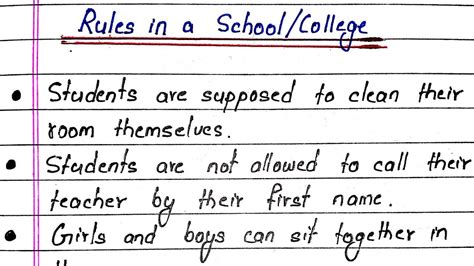 Rules in a School/College
• Students are supposed to clean their
room themselves.
• Students are not allowed to call their
teacher by their first name.
• Girls and boys can sit together in